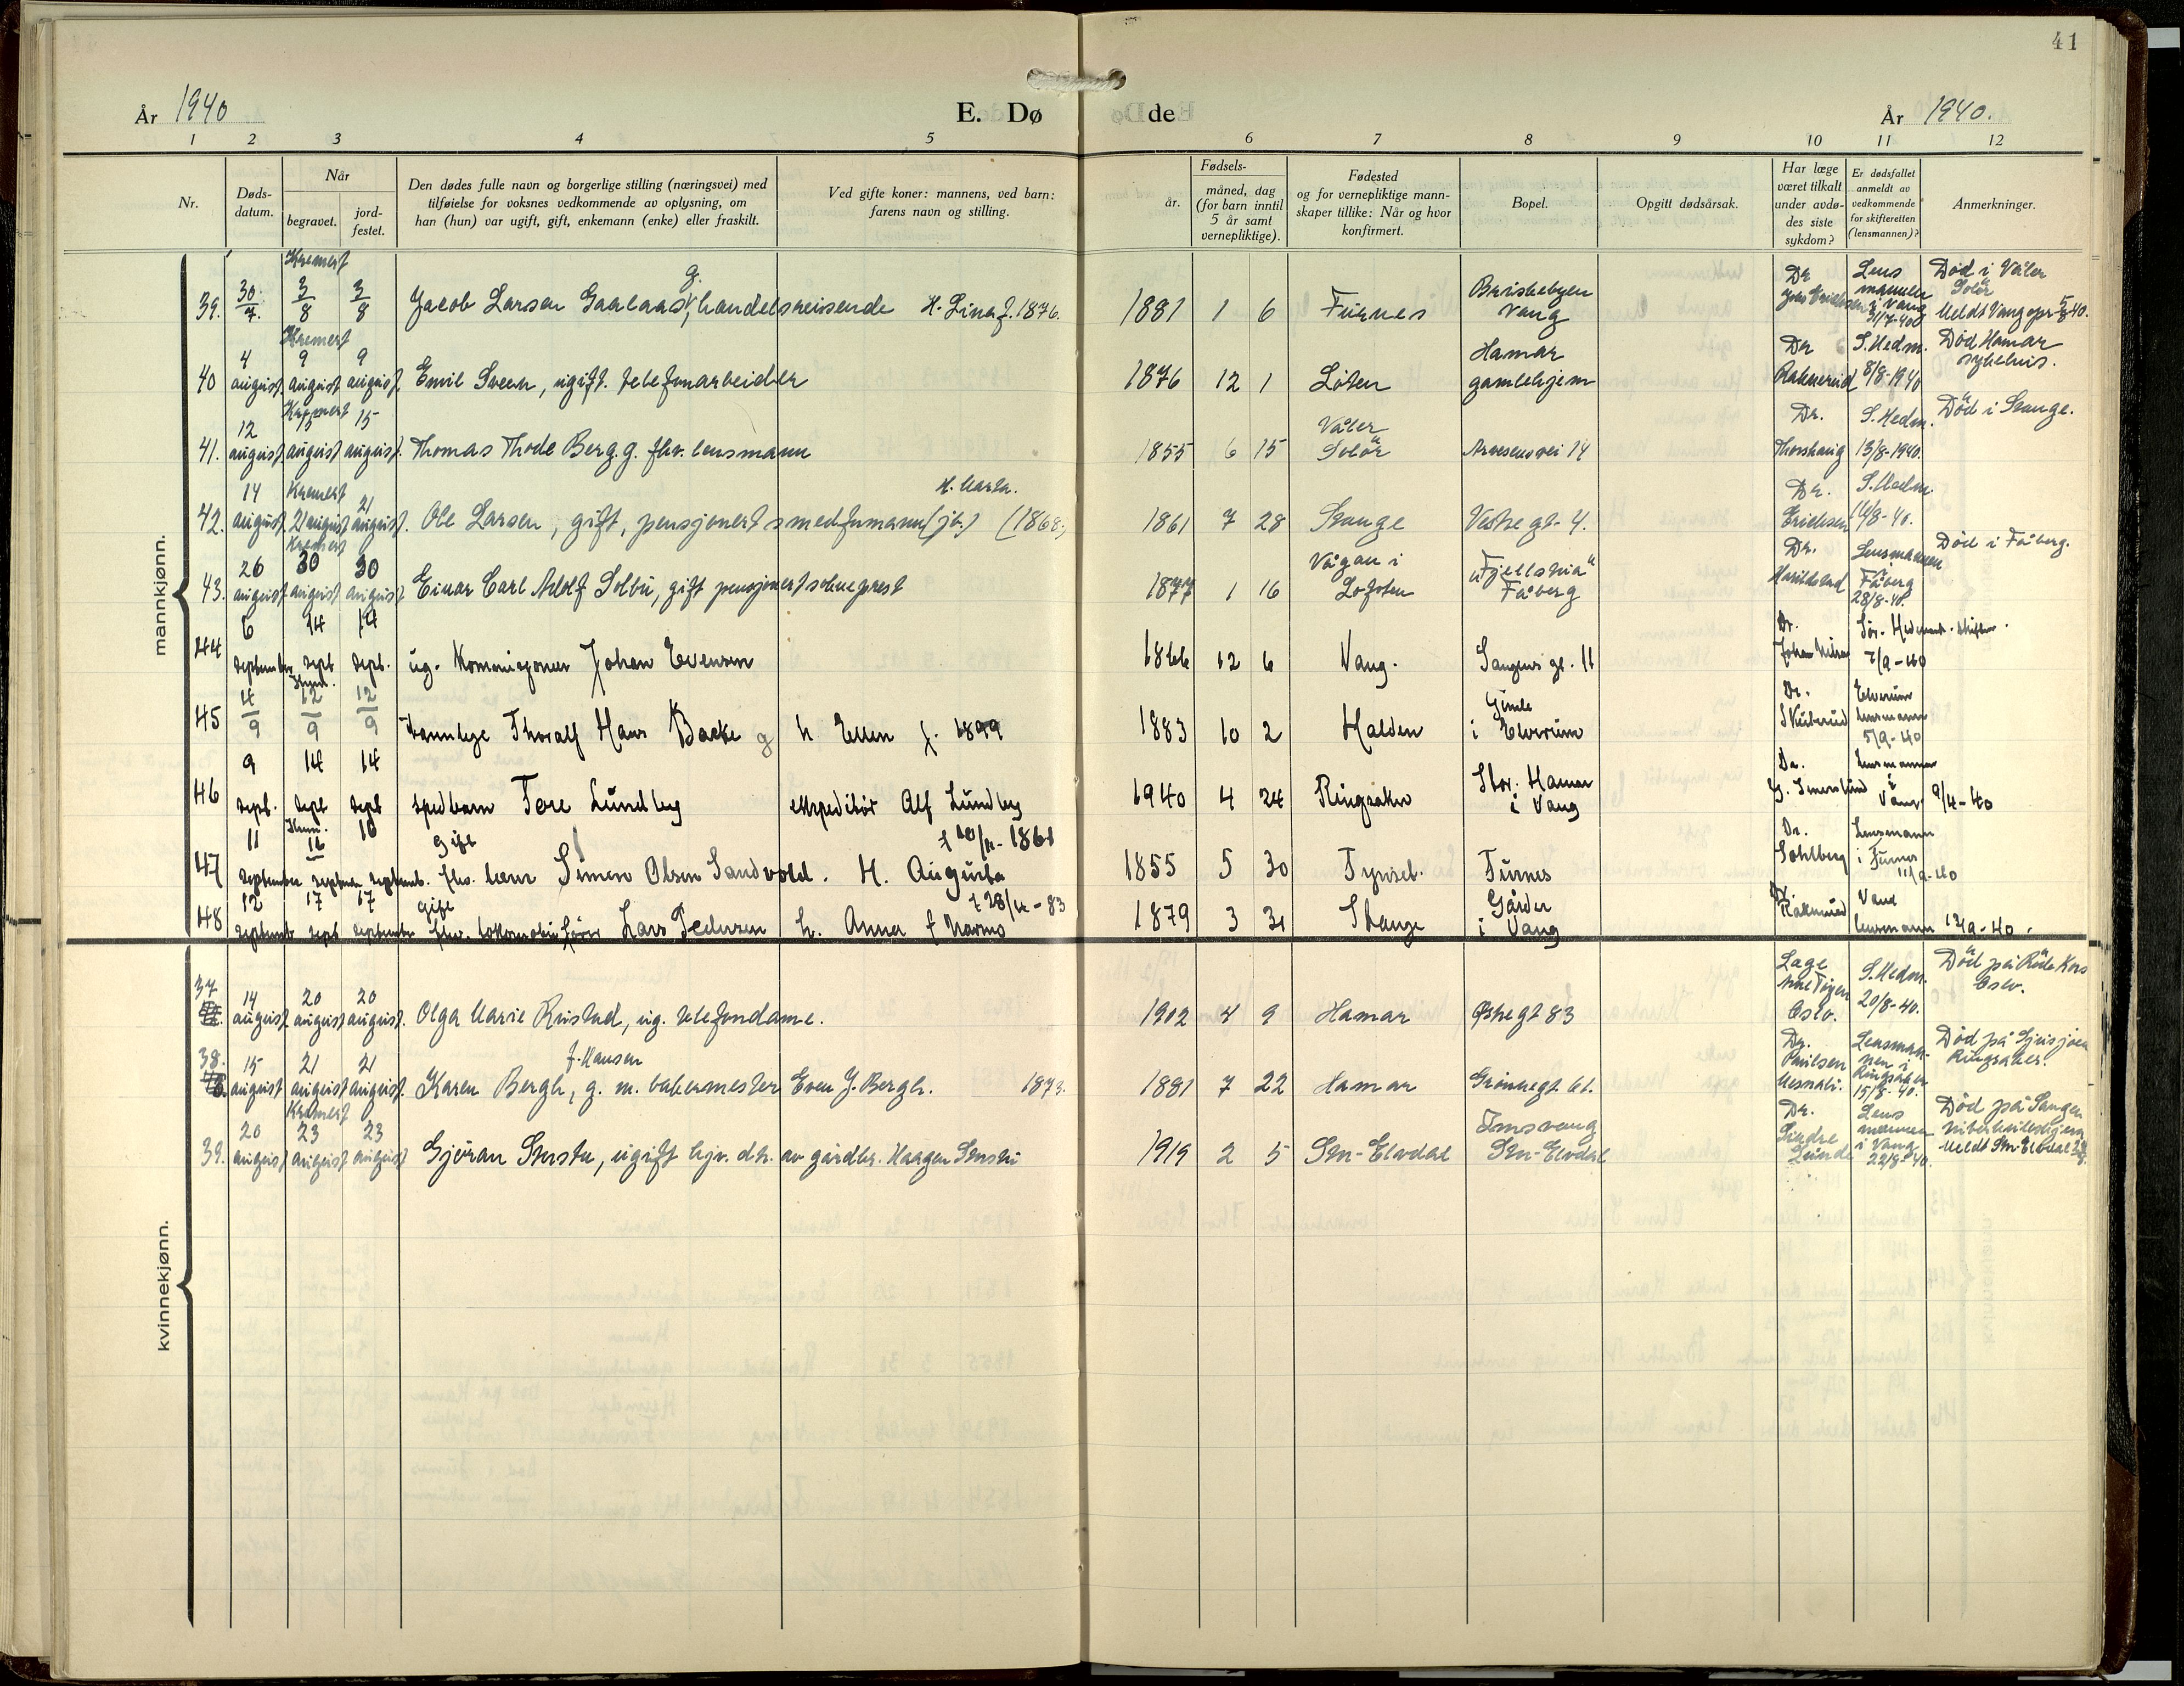 41
År 1940
E. Dø
de
År 1940.
1 2 3 4 5 6 7 8 9 10 11 12
Nr.
Døds-
datum.
Når
begravet.
jord-
festet.
Den dødes fulle navn og borgerlige stilling (næringsvei) med
tilføielse for voksnes vedkommende av oplysning, om
han (hun) var ugift, gift, enkemann (enke) eller fraskilt.
Ved gifte koner: mannens, ved barn:
farens navn og stilling.
Fødsels-
år.
måned, dag
(for barn inntil
5 år samt
vernepliktige).
Fødested
og for vernepliktige mann-
skaper tillike: Når og hvor
konfirmert.
Bopel.
Opgitt dødsårsak.
Har læge
været tilkalt
under avdø-
des siste
sykdom?
Er dødsfallet
anmeldt av
vedkommende
for skifteretten
(lensmannen)?
Anmerkninger.
mannkjønn.
Kremert
39. 30/7. 3/8 3/8 Jacob Larsen Gaalaas, g. handelsreisende H. Lina f. 1876. 1881 1 6 Furnes
Briskebyen
Vang
Dr
Lens
mannen
i Vang
31/7-40
Död i Våler
Solör
Meldt Vang
Kremert
40 4 august 9 august 9 august. Emil Sveen, ugift. telefonarbeider 1876 12 1 Löten
Hamar
gamlehjem
Dr
S. Hedm.
8/8-1940
Død Hamar
sykehus.
Kremert
41. 12 august. 15 august 15 august. Thomas Thode Berg. g. fhv. lensmann 1855 6 15
Våler
Solör
Arvesens vei 14
Dr.
Thorshaug
S. Hedm.
13/8-1940.
Död i Stange.
Kremert
42. 14 august. 21 august 21 august. Ole Larsen, gift, pensjonert smedformann (jb.)
H. Marta.
(1868)
1861 7 28 Stange Vestregt. 4.
Dr.
Erichsen
S. Hedm.
16/8-40.
Kremert
43. 26 august 30 august 30 august Einar Carl Adolf Solbu, gift pensjonert sokneprest 1877 1 16
Vågan i
Lofoten
"Fjellstua"
Fåberg
Dr.
Lensmannen
i
Fåberg
28/8-40.
Död i Fåberg.
44 6 september 14 sept 14 sept. ug. Kommisjonær Johan Evensen 1866 12 6 Vang. Sangens gt. 11
Dr.
Johan Nilsen
7/9-40
45 4/9 12/9 12/9 Tannlege Thoralf Hans Backe g h. Ellen f. 1899 1883 10 2 Halden
i Elverum
Dr.
Elverum
lensmann
5/9-40
46 9 sept. 14 sept 14 sept spedbarn Tore Lundby ekspeditör Alf Lundby 1940 4 24 Ringsaker
Stor. Hamar
i Vang
Dr.
lensmannen
i
Vang
9/4-40
47 11 september 16 september 16 septemb.
gift
fhv. lærer Simen Olsen Sandvold. H. Augusta
1861
1855 5 30 Tynset. Furnes
Dr.
Sohlberg
Lensmann
i Furnes
11/9-40
48 12 septemb 17 sept 17 september
gift
fhv. lokomotivförer Lars Pedersen h. Anna f Narmo
f 28/4-83
1879 3 31 Stange
Gårder
i Vang
Dr.
Raknerud
Vang
lensmann 13/9-40.
kvinnekjønn.
37. 14 august. 20 august 20 august. Olga Marie Rustad, ug. telefondame. 1902 4 9 Hamar Østregt 83
Lage
Oslo.
S. Hedm.
20/8-40.
Död på Røde Kors
Oslo.
38. 15 august 21 august 21 august.
f. Hansen
Karen Bergh, g. m. bakermester Even J. Bergh. 1873. 1881 7 22 Hamar Grönnegt. 61.
Dr.
Paulsen
Mesnali.
Lensman-
nen i
Ringsaker
15/8-40.
Död på Sjusjøen
Ringsaker.
Kremert
39. 20 august 23 august 23 august Gjöran Stustu, ugift hjv. dtr. av gårdbr. Haagen Stustu 1919 2 5 Stor-Elvdal
Stor-Elvdal
Dr.
Sindre
Lunde
Lens
mannen
i Vang
22/8-40.
Död på Sangen
Meldt Stor-Elvdal